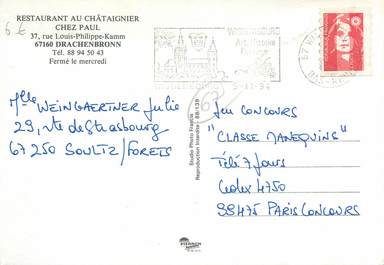 RESTAURANT AU CHÂTAIGNIER
CHEZ PAUL
37, rue Louis-Philippe-Kamm
67160 DRACHENBRONN
Tél. 88 94 50 43
Fermé le mercredi
6 €
Art, Histoire
5-11-94
Mlle WEINGAERTNER Julie
29, rte de Strasbourg
67250 SOULTZ/FORETS
Studio Photo Francis
Reproduction Interdite - 88/138
Jeu CONCOURS
"CLASSE MANEQUINS"
Télé 7 Jours
Cedex 4750
99475 PARIS CONCOURS
PIERRON